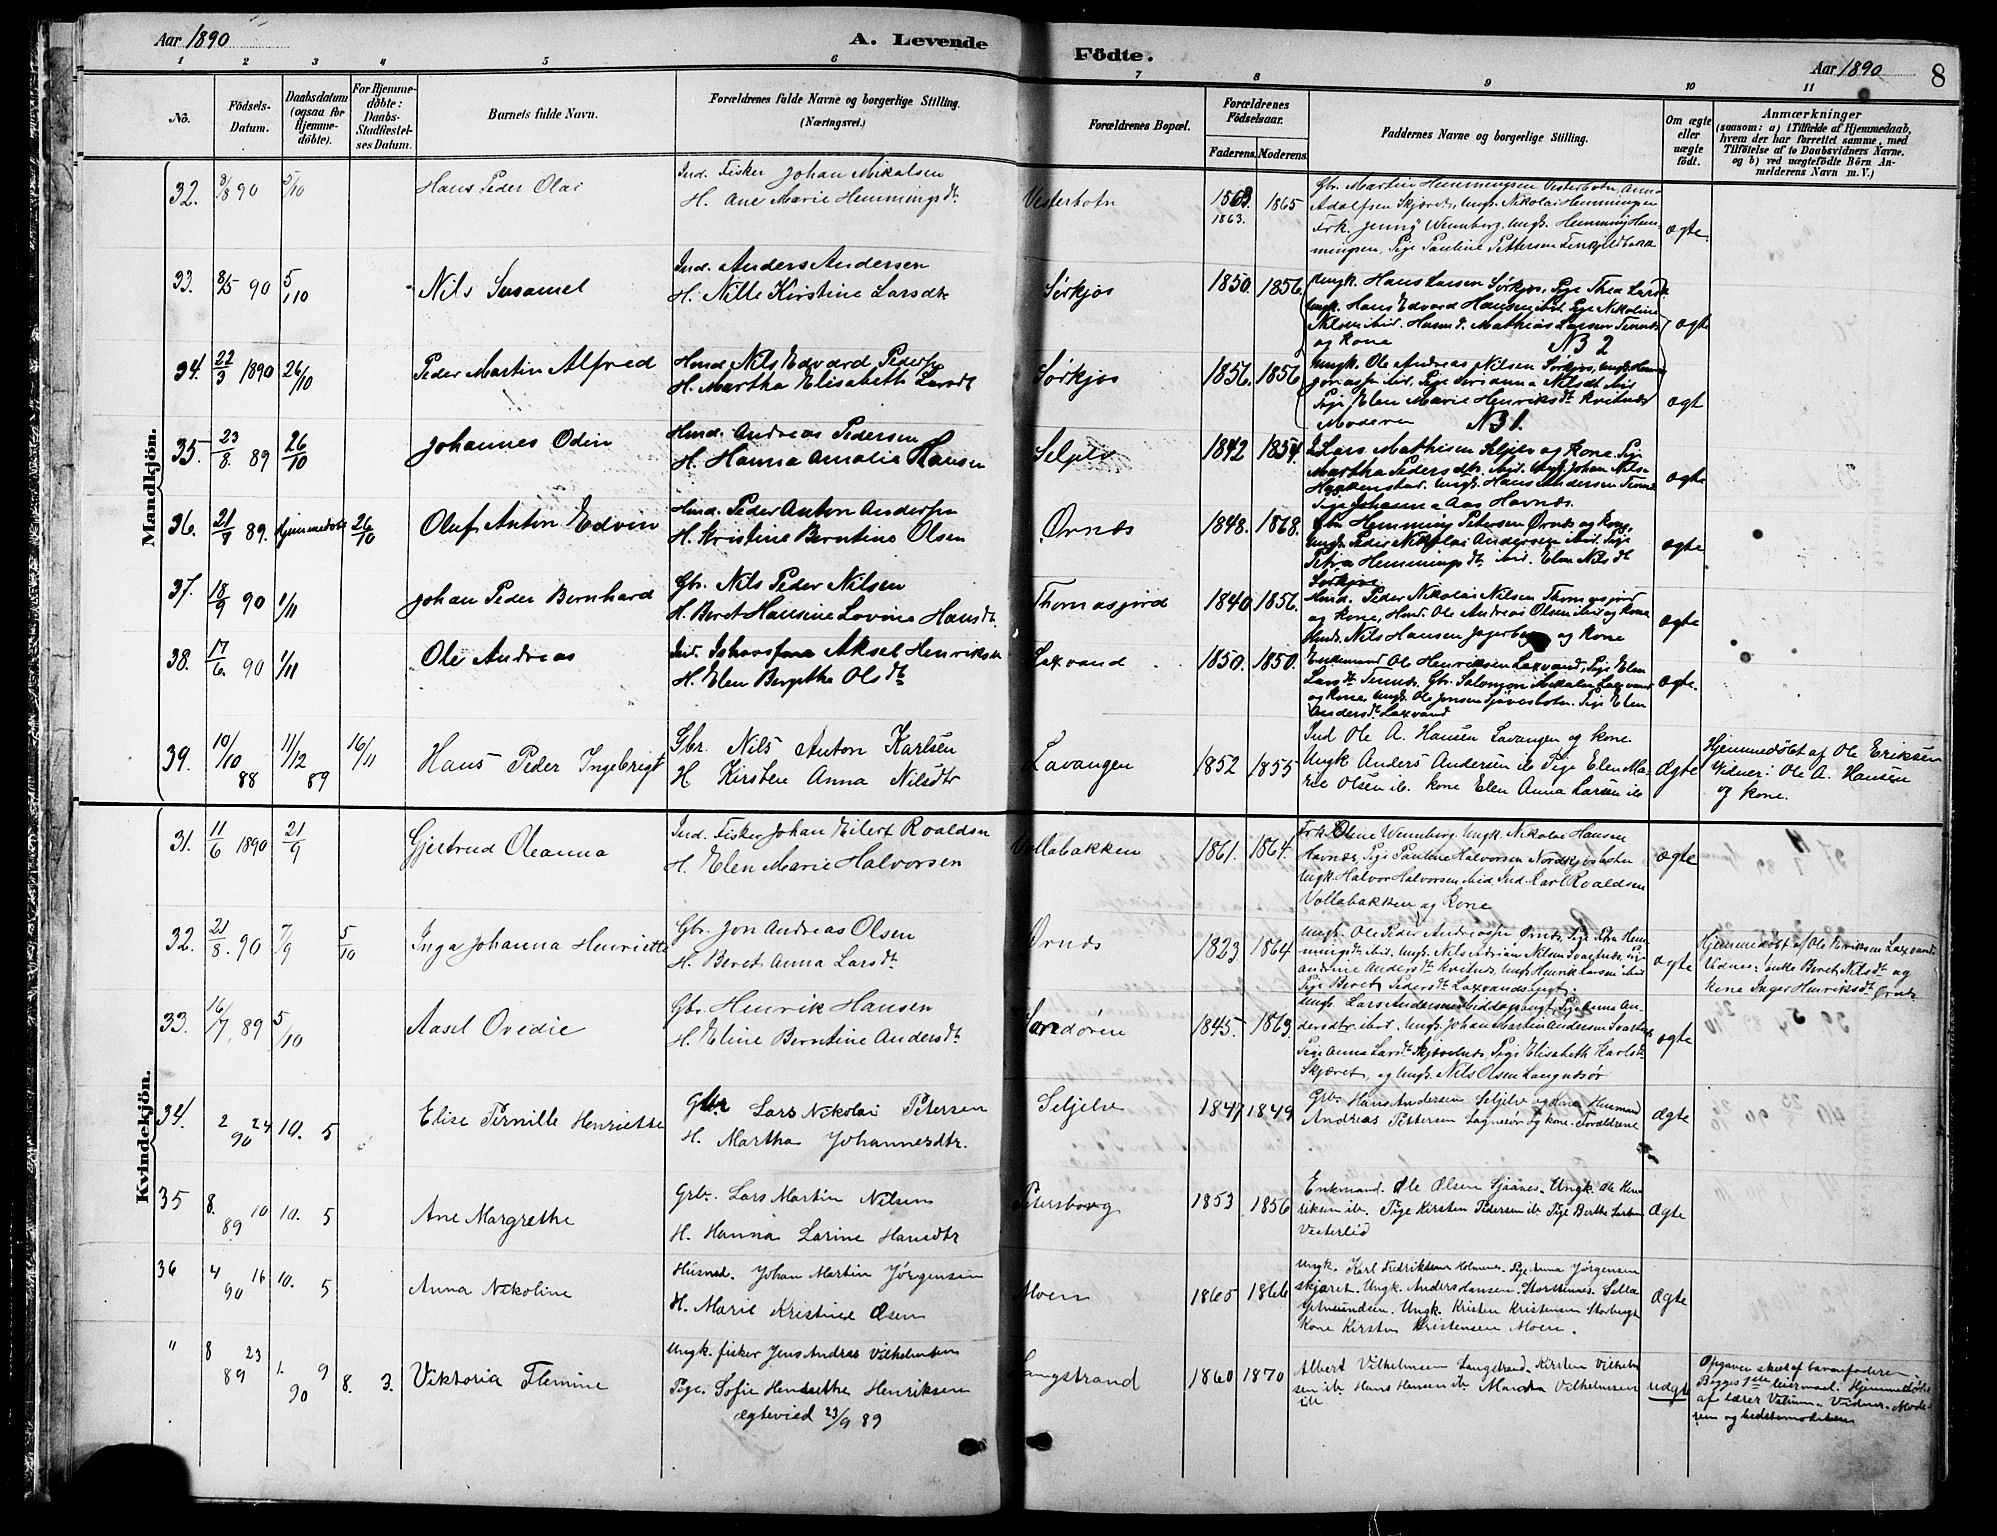 Aar 1890
A. Levende
Födte.
Aar 1890
8
1 2 3 4 5 6 7 8 9 10 11
No.
Födsels-
Datum.
Daabsdatum
(ogsaa for
Hjemme-
döbte).
For Hjemme-
döbte:
Daabs-
Stadfæstel-
ses Datum.
Barnets fulde Navn.
Forældrenes fulde Navne og borgerlige Stilling.
(Næringsvei.)
Forældrenes Bopæl.
Forældrenes
Födselsaar.
Faderens. Moderens.
Faddernes Navne og borgerlige Stilling.
Om ægte
eller
uægte
födt.
Anmærkninger
(saasom: a) i Tilfælde af Hjemmedaab,
hvem der har forrettet samme, med
Tilföielse af to Daabsvidners Navne,
og b) ved uægtefödte Börn An-
melderens Navn m. V.)
Mandkjön.
32. 8/8 90 5/10 Hans Peder Olai
Ind. Fisker Johan Mikalsen
H. Ane Marie Hemmingsdt.
Vesterbotn 1863. 1865
Gbr. Martin Hemmingsen Vesterbotn, Anna
Adolfsen Skjæret, Ungk. Nikolai Hemmingsen
Frk. Jenny Wennberg, Ungk. Hemming Hem-
mingsen, Pige Pauline Pettersen
ægte.
33. 8/5 90 5/10 Nils Samuel
Ind. Anders Andersen
H. Nille Kirstine Larsdtr
Sørkjos 1850. 1856.
Ungk. Hans Larsen Sørkjos, Pige Thea Larsdt.
Ungk. Hans Edvard Hansen ibid. Pige Nikoline
Nilsen ibid. Husmd. Mathias Larsen
og kone
NB 2
ægte
34. 22/3 1890 26/10 Peder Martin Alfred
Husmd. Nils Edvard Peders.
H. Martha Elisabeth Larsdt
Sørkjos 1856. 1856
Ungk. Ole Andreas Nilsen Sørkjos, Ungk.
ibid. Pige Nilsdt. ibid
Pige Elen Marie Henriksdt. Kvitnes
Moderen NB 1.
ægt
35. 23/8. 89 26/10 Johannes Odin
Husmd. Andreas Pedersen
H. Hanna Amalie Hansen
Seljelv 1842 1854.
Lars Mathisen Seljelv og kone. Pige
Martha Pedersdtr. ibid. Ungk. Johan Nils-
Ungk. Hans Andersen
Pige Johanne Aas Havnæs.
ægte
36. 21/7 89. Hjemmedøbt 26/10 Oluf Anton Edvin
Husmd. Peder Anton Anders.
H. Kristine Berntine Olsen
Ørnæs 1848. 1868.
Gbr. Hemming Petersen Ørnæs og kone,
Ungk. Peder Nikolai Andersen ibid. Pige
Petra Hemmingsdt. ibid. Elen Nilsdt
Sørkjos
ægte
37. 18/9 90 1/11 Johan Peder Bernhard
Gbr. Nils Peder Nilsen
H. Beret Hansine Lovine Hansdt.
Thomasjord 1840. 1856.
Husmd. Peder Nikolai Nilsen Thomasjord
og kone, Husmd. Ole Andreas Olsen ibid og kone
Husmd. Nils Hansen og kone
ægte
38. 17/6. 90 1/11 Ole Andreas
Ind. Aksel Henriksen
H. Elen Olsdt
Laxvand 1850. 1850.
Enkemand Ole Henriksen Laxvand, Pige Elen
Larsdt. Gbr. Salomon Mikalsen Laxvand
og kone. Ungk. Ole Jensen Sjøvesbotn. Pige Elen
Andersdt. Laxvand
ægte.
39. 10/10 88 11/12 89 16/11 Hans Peder Ingebrigt
Gbr. Nils Anton Karlsen
H Kirsten Anna Nilsdtr
Lavangen 1852 1855
Ind Ole A. Hansen Lavangen og kone.
Ungk Anders Andersen ib Pige Elen Ma-
rie Olsen ib. kone Elen Anna Larsen ib
ægte
Hjemmedøbt af Ole Eriksen
Vidner: Ole A. Hansen
og kone.
Kvindekjön.
31. 11/6 1890 21/9 Gjertrud Oleanna
Ind. Fisker Johan Eilert Roaldsen
H. Elen Marie Halvorsen
Vollabakken 1861. 1864.
Frk. Oline Wennberg. Ungk. Nikolai Hansen
Havnæs, Pige Pauline Halvorsen Nordkjosbotn
Ungk. Halvor Halvorsen ibid, Ind. Karl Roaldsen
Vollabakken og Kone
ægte
32. 21/8. 90 7/9 5/10 Inga Johanna Henriette
Gbr. Jon Andreas Olsen
H. Beret Anna Larsdt
Ørnæs 1823 1864
Ungk. Ole Peder Ørnæs, Pige Petra Hem-
mingsdt ibid. Ungk. Nils Adrian Nilsen Svartnæs,
Andersdt. Kvitnæs, Ungk. Henrik Larsen ibid
Pige Beret Pedersdt. Laxvand
ægte
Hjemmedøbt af Ole Eriksen Laxvand.
Vidnes: Enke Beret Nilsdt og
Kone Inger Henriksdt. Ørnæs
33. 16/7 89 5/10 Aasel Ovidie
Gbr. Henrik Hansen
H. Eline Berntine Andersdt
1845. 1863.
Ungk. Lars Andersen Pige Anna An-
dersdtr. ibid. Ungk. Johan Martin Andersen Svartnæs
Pige Anna Larsdt. Pige Elisabeth Karlsdt.
Skjæret, og Ungk. Nils Olsen
ægte
34. 2 24 90 10. 5 Elise Pernille Henriette
Gbr Lars Nikolai Petersen
H. Martha Johannesdtr.
Seljelv 1847 1849
Grb. Hans Andersen Seljelv og kone Husmand
Andreas Pettersen og kone. Forældrene
ægte
35 8. 10 89 10. 5 Ane Margrethe
Grb. Lars Martin Nilsen
H. Hanna Larine Hansdtr
Petersborg 1853 1856
Enkmand. Ole Olsen Sjaanes. Ungk. Ole Hen-
riksen ib. Pige Kirsten Pedersen ib. Pige Berthe Larsen
Vesterlid
ægte
36 4 16 90 10. 5 Anna Nikoline
Husmd. Johan Martin Jørgensen
H. Marie Kristine Olsen
Moen 1865 1866
Ungk. Karl Fredriksen Holmenes. Pige Anna Jørgensen
skjæret. Ungk. Anders Hansen Storstennes.
Ungk. Kristen Kristensen Storberget
Kone Kirsten Kristensen Moen.
ægte
" 8 23 89 1. 9 90 8. 3. Viktoria Flemine
Ungk. fisker Jens Andreas Vilhelmsen
Pige. Sofie Henriksen
Ægteviet 23/9 89
Langstrand 1860 1870
Albert Vilhelmsen Langstrand. Kirsten Vilhelm-
sen ib. Hans Hansen ib. Martha Vilhelmsen
ib
uægte
Opgaver skeet af barnefaderen.
Begges 1ste leiermaal. Hjemmedøbt
af Lærer Vidner. Mode-
ren og bedstemoderen